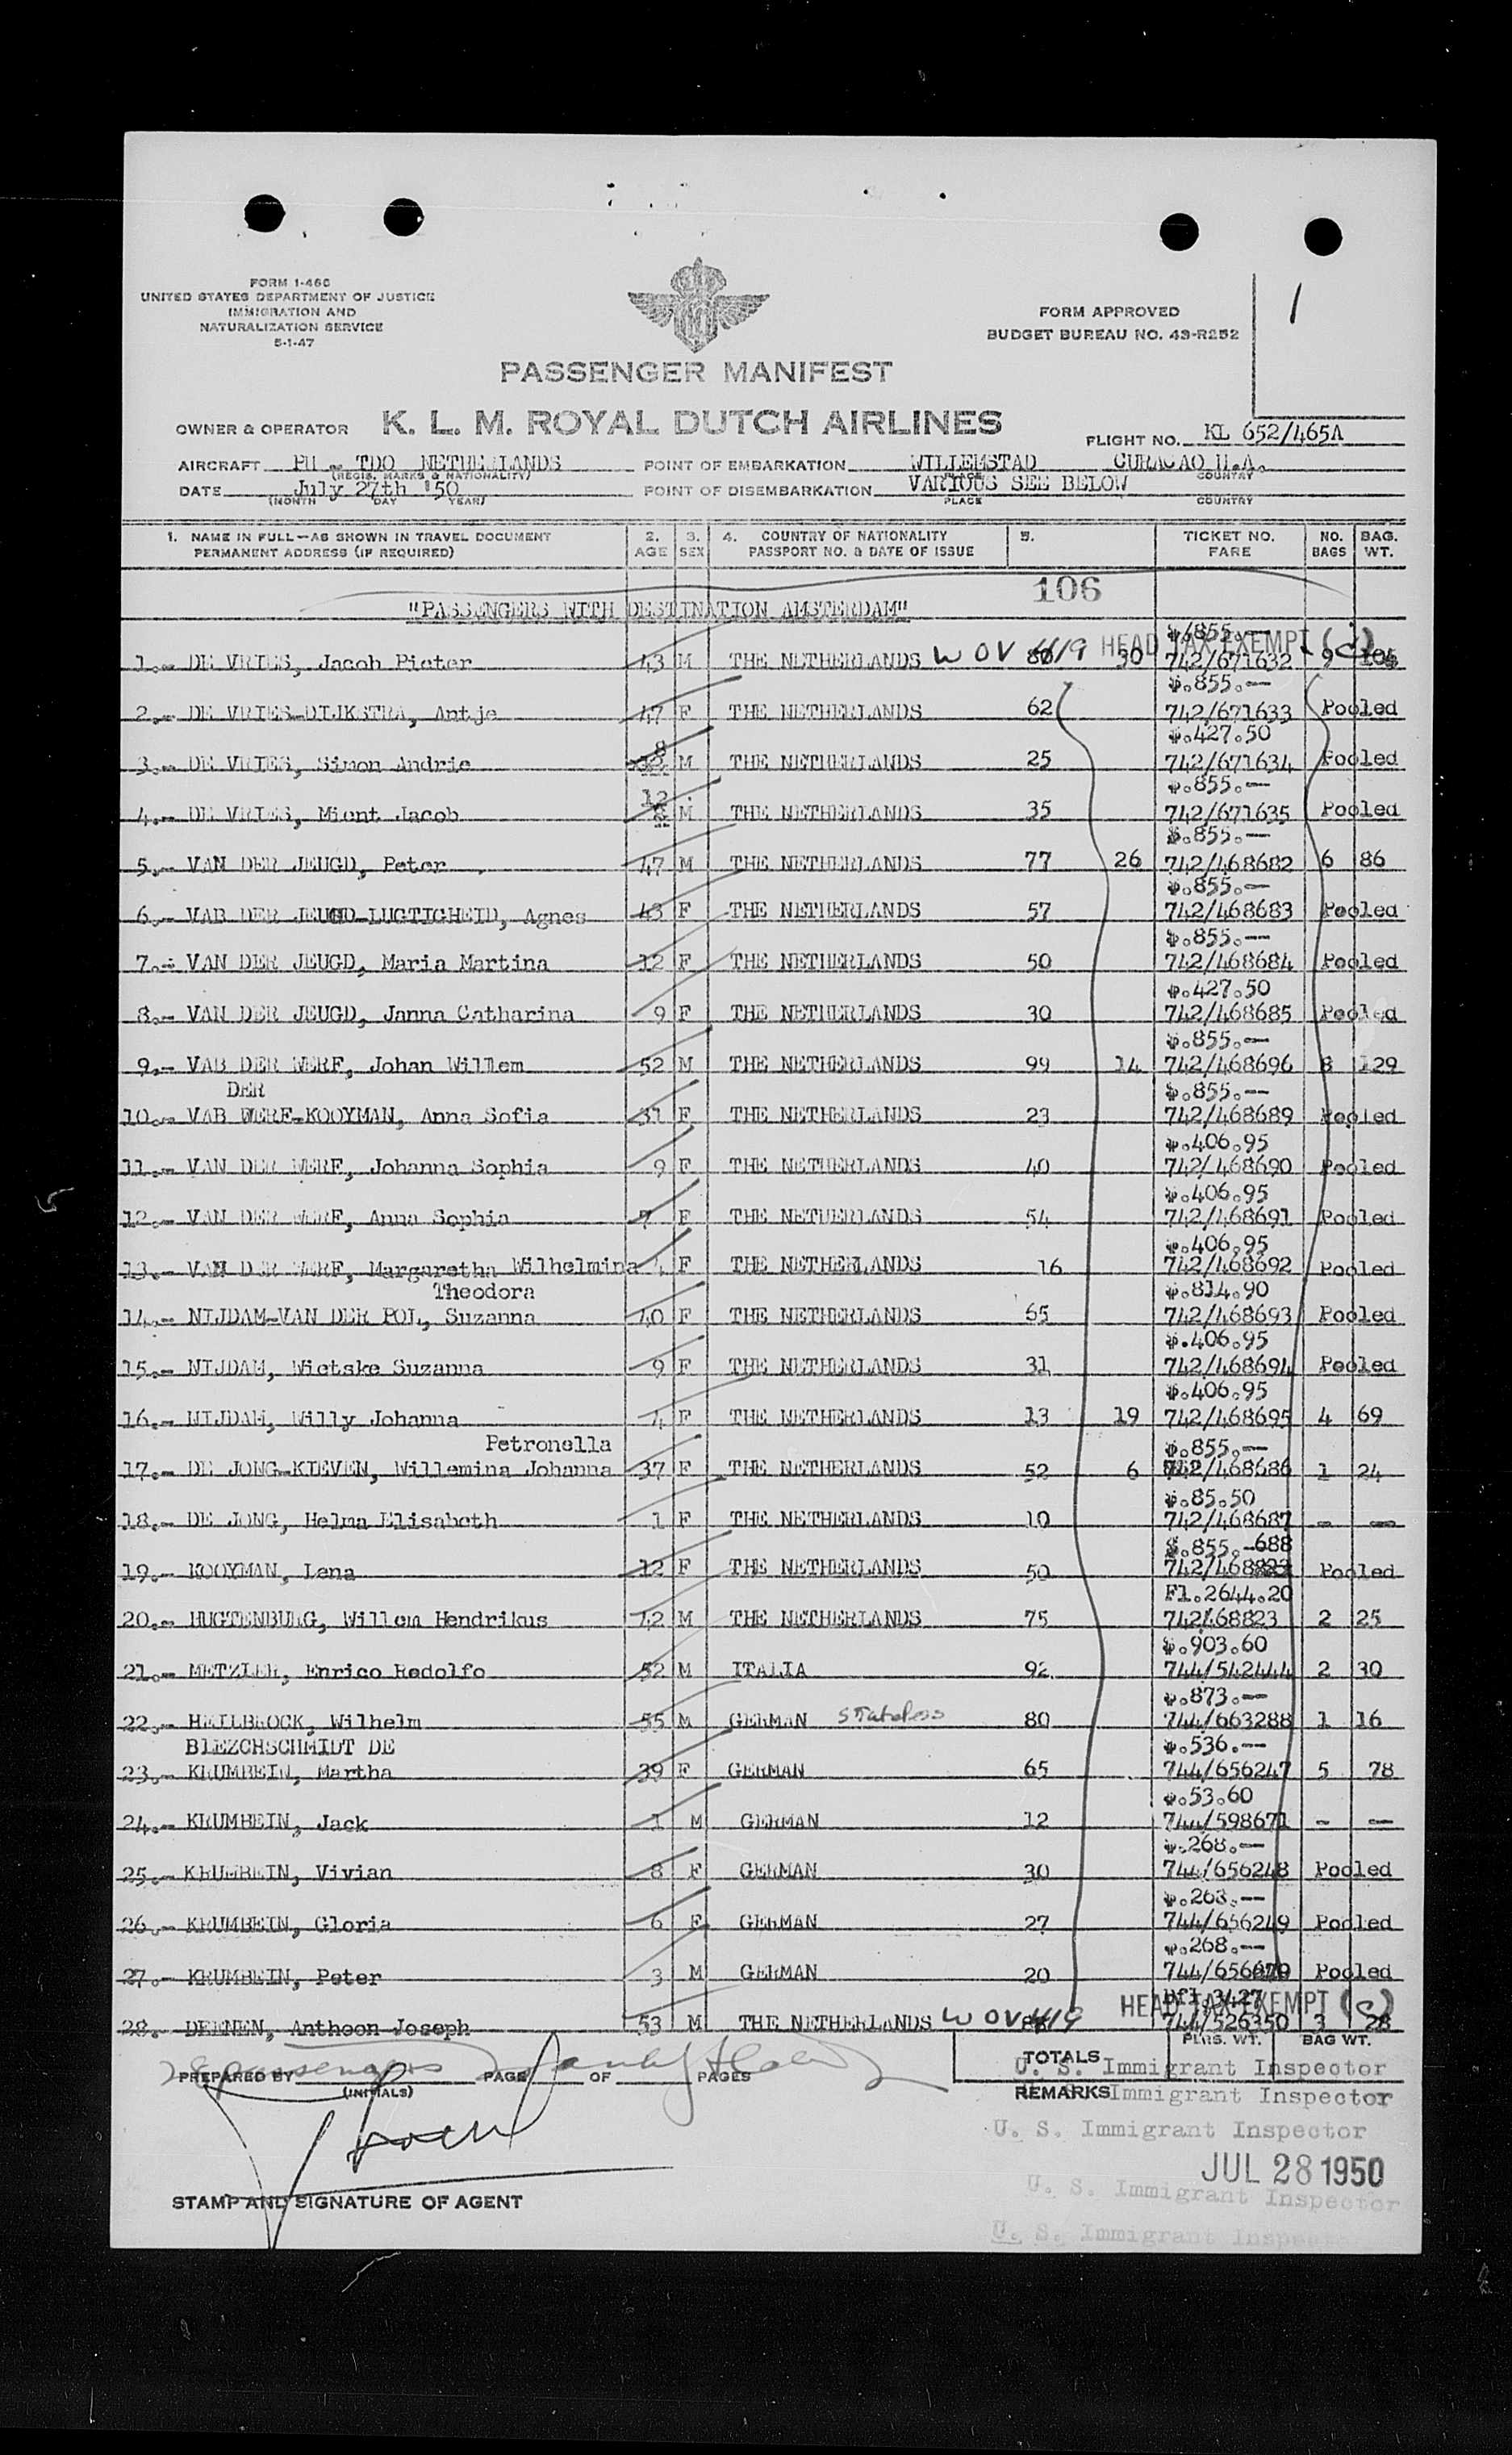 FORM I-466
UNITED STATES DEPARTMENT OF JUSTICE
IMMIGRATION AND
NATURALIZATION SERVICE
5-1-47
FORM APPROVED
BUDGET BUREAU NO. 43-R252
1
PASSENGER MANIFEST
OWNER & OPERATOR K. L. M. ROYAL DUTCH AIRLINES FLIGHT NO. KL 652/465A
AIRCRAFT PH - TDO NETHERLANDS POINT OF EMBARKATION WILLEMSTAD CURACAO N.A.
(REGIS. MARKS & NATIONALITY) PLACE COUNTRY
DATE July 27th '50 POINT OF DISEMBARKATION VARIOUS SEE BELOW
(MONTH DAY YEAR) PLACE COUNTRY
1. NAME IN FULL—AS SHOWN IN TRAVEL DOCUMENT 2. 3. 4. COUNTRY OF NATIONALITY 5. TICKET NO. NO. BAG.
PERMANENT ADDRESS (IF REQUIRED) AGE SEX PASSPORT NO. & DATE OF ISSUE FARE BAGS WT.
106
"PASSENGERS WITH DESTINATION AMSTERDAM"
$.855.—
HEAD TAX EXEMPT
1.- DE VRIES, Jacob Pieter 43 M THE NETHERLANDS W OV 4419 80 30 742/671632 9 104
$.855.—
2.- DE VRIES-DIJKSTRA, Antje 47 F THE NETHERLANDS 62 742/671633 Pooled
8 $.427.50
3.- DE VRIES, Simon Andrie M THE NETHERLANDS 25 742/671634 Pooled
12 $.855.—
4.- DE VRIES, Mient Jacob M THE NETHERLANDS 35 742/671635 Pooled
$.855.—
5.- VAN DER JEUGD, Peter 47 M THE NETHERLANDS 77 26 742/468682 6 86
$.855.—
6.- VAB DER JEUGD-LUGTIGHEID, Agnes 43 F THE NETHERLANDS 57 742/468683 Pooled
$.855.--
7.- VAN DER JEUGD, Maria Martina 12 F THE NETHERLANDS 50 742/468684 Pooled
$.427.50
8.- VAN DER JEUGD, Janna Catharina 9 F THE NETHERLANDS 30 742/468685 Pooled
$.855.—
9.- VAB DER WERF, Johan Willem 52 M THE NETHERLANDS 99 14 742/468696 8 129
DER $.855.--
10.- VAB WERF-KOOYMAN, Anna Sofia 31 F THE NETHERLANDS 23 742/468689 Pooled
$.406.95
11.- VAN DER WERF, Johanna Sophia 9 F THE NETHERLANDS 40 742/468690 Pooled
$.406.95
12.- VAN DER WERF, Anna Sophia 7 F THE NETHERLANDS 54 742/468691 Pooled
$.406.95
13.- VAN DER WERF, Margaretha Wilhelmina 4 F THE NETHERLANDS 16 742/468692 Pooled
Theodora $.814.90
14.- NIJDAM-VAN DER POL, Suzanna 40 F THE NETHERLANDS 65 742/468693 Pooled
$.406.95
15.- NIJDAM, Wietske Suzanna 9 F THE NETHERLANDS 31 742/468694 Pooled
$.406.95
16.- NIJDAM, Willy Johanna 4 F THE NETHERLANDS 13 19 742/468695 4 69
Petronella $.855.—
17.- DE JONG-KIEVEN, Willemina Johanna 37 F THE NETHERLANDS 52 6 742/468686 1 24
$.85.50
18.- DE JONG, Helma Elisabeth 1 F THE NETHERLANDS 10 742/468687 - —
$.855.-688
19.- KOOYMAN, Lena 12 F THE NETHERLANDS 50 742/468 Pooled
Fl.2644.20
20.- HUGTENBURG, Willem Hendrikus 42 M THE NETHERLANDS 75 742468823 2 25
$.903.60
21.- METZLER, Enrico Redolfo 52 M ITALIA 92 744/542444 2 30
$.873.—
22.- HEILBROCK, Wilhelm 55 M GERMAN Stateless 80 744/663288 1 16
BLEZCHSCHMIDT DE $.536.--
23.- KRUMBEIN, Martha 39 F GERMAN 65 744/656247 5 78
$.53.60
24.- KRUMBEIN, Jack 1 M GERMAN 12 744/598671 - —
$.268.—
25.- KRUMBEIN, Vivian 8 F GERMAN 30 744/656248 Pooled
$.268.--
26.- KRUMBEIN, Gloria 6 F GERMAN 27 744/656249 Pooled
$.268.--
27.- KRUMBEIN, Peter 3 M GERMAN 20 Pooled
HEAD TAX EXEMPT
28. DEENEN, Anthoon Joseph 53 M THE NETHERLANDS W OV 4419 744/526350 3 28
PLRS. WT. BAG WT.
28 passengers
TOTALS
U. S. Immigrant Inspector
PREPARED BY PAGE OF PAGES
(INITIALS)
REMARKS Immigrant Inspector
U. S. Immigrant Inspector
JUL 28 1950
U. S. Immigrant Inspector
STAMP AND SIGNATURE OF AGENT
U. S. Immigrant